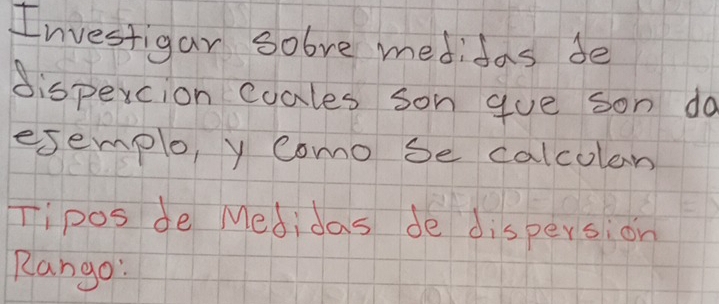 Investigar sobre medidas de
dispercion cuales son que son da
esemplo, y como se calculan
Tipos de Medidas de dispersión
Rango: